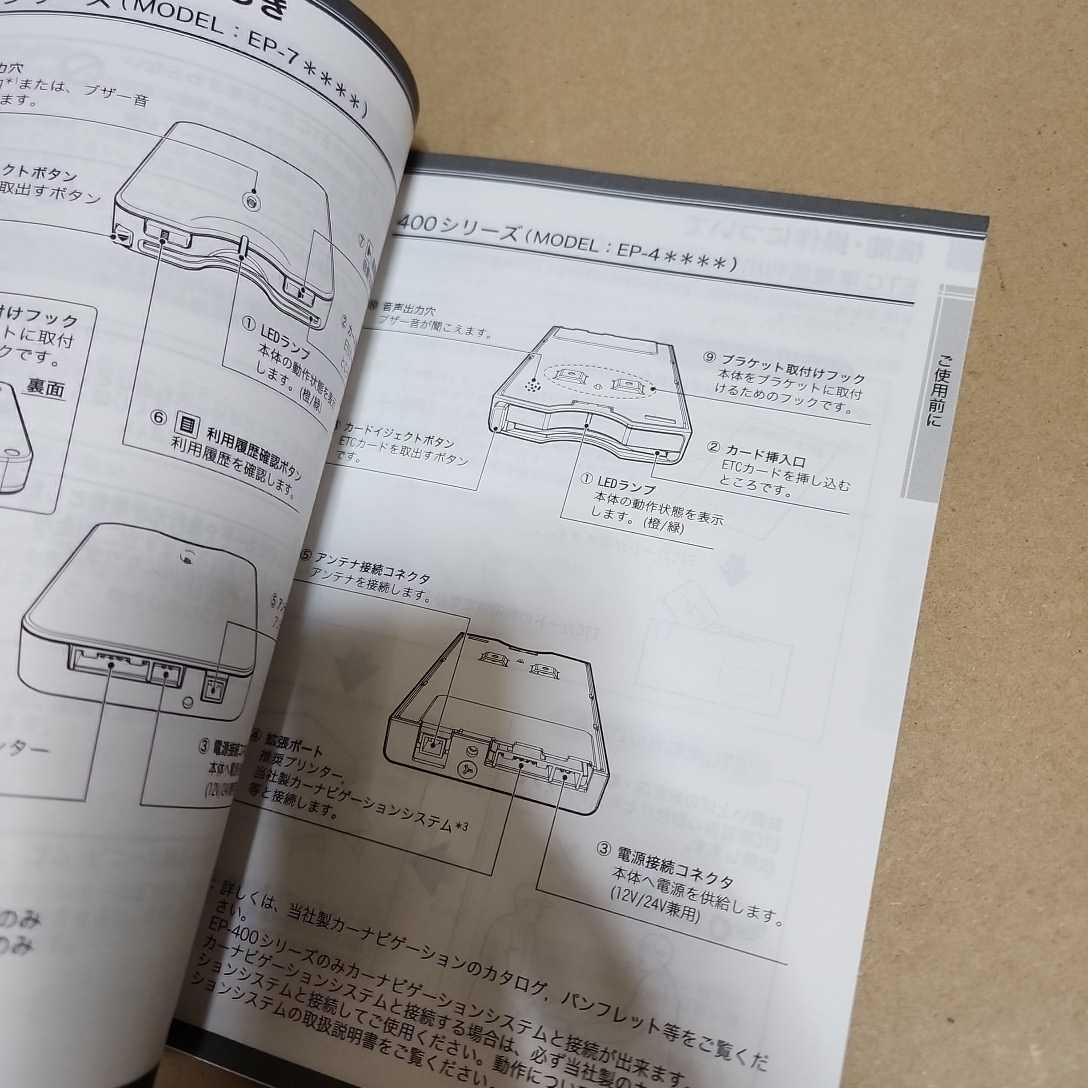 シリーズ（MODEL：EP-7＊＊＊＊）
力穴
または、ブザー音
ます。
クトボタン
取出すボタン
① LEDランプ
本体の動作状態を表示
します。(橙/緑)
けフック
トに取付
クです。
裏面
⑥ 利用履歴確認ボタン
利用履歴を確認します。
ンター
③ 電源接続コ
本体へ電
(12V/24V
のみ
のみ
400シリーズ（MODEL：EP-4＊＊＊＊）
音声出力穴
ブザー音が聞こえます。
⑨ ブラケット取付けフック
本体をブラケットに取付
けるためのフックです。
カードイジェクトボタン
ETCカードを取出すボタン
です。
② カード挿入口
ETCカードを挿し込む
ところです。
① LEDランプ
本体の動作状態を表示
します。(橙/緑)
ご使用前に
⑤ アンテナ接続コネクタ
アンテナを接続します。
④ 拡張ポート
推奨プリンター,
当社製カーナビゲーションシステム＊3
等と接続します。
③ 電源接続コネクタ
本体へ電源を供給します。
(12V/24V兼用)
詳しくは、当社製カーナビゲーションのカタログ，パンフレット等をご覧くだ
さい。
EP-400シリーズのみカーナビゲーションシステムと接続が出来ます。
カーナビゲーションシステムと接続する場合は、必ず当社製の
ションシステムと接続してご使用ください。動作につい
ションシステムの取扱説明書をご覧ください。